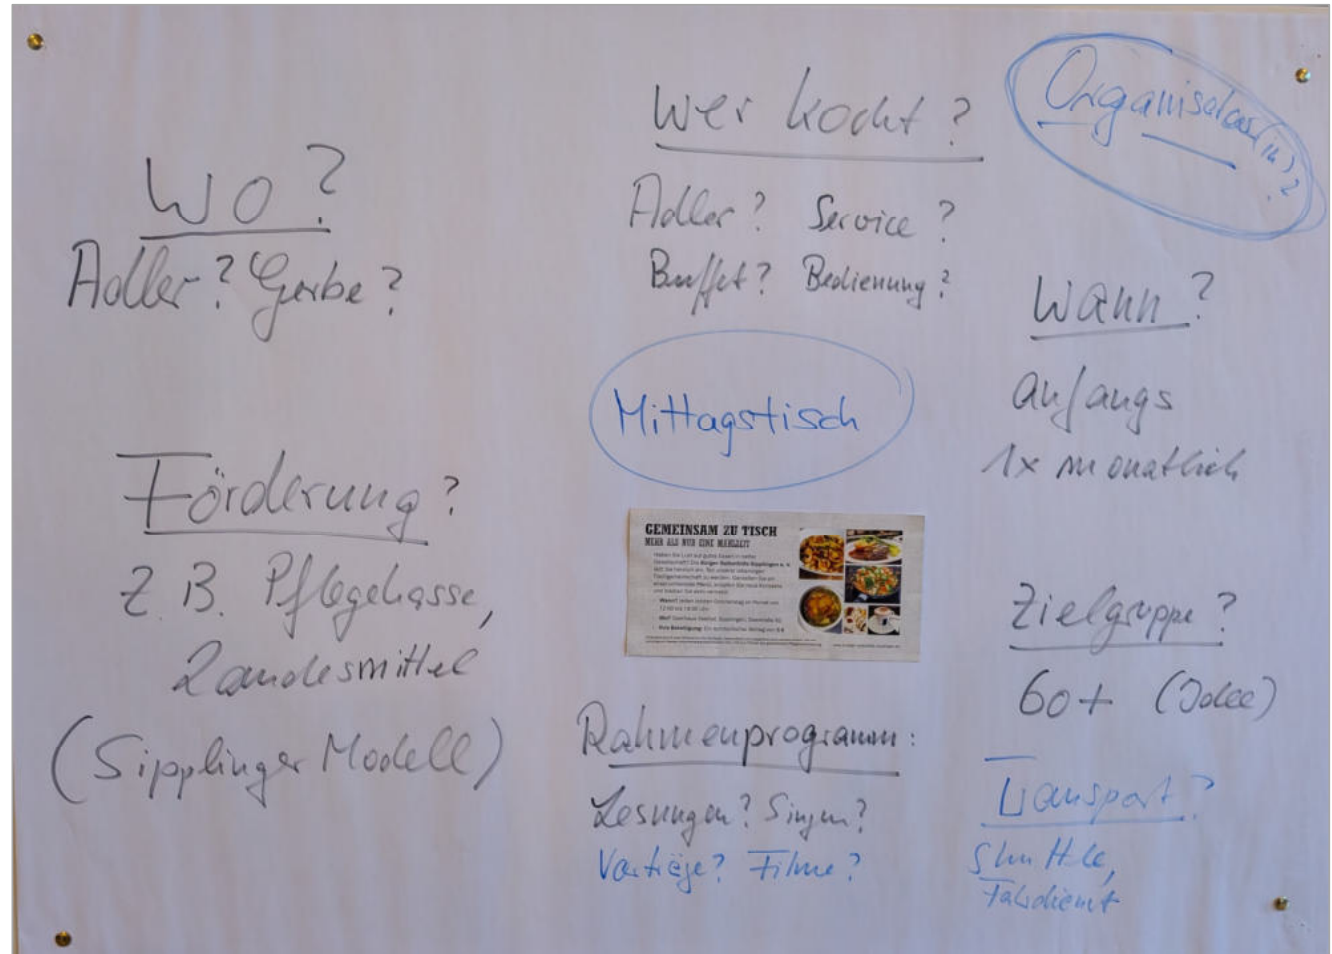 Wo?
Adler? Gerbe?
Förderung?
z.B. Pflegekasse,
Landesmittel
(Sipplinger Modell)
Wer kocht?
Adler? Service?
Buffet? Bedienung?
Mittagstisch
GEMEINSAM ZU TISCH
MEHR ALS NUR EINE MAHLZEIT
Rahmenprogramm:
Lesungen? Singen?
Vorträge? Filme?
Organisator(in)?
Wann?
anfangs
1x monatlich
Zielgruppe?
60+ (Idee)
Transport?
Shuttle,
Fahrdienst